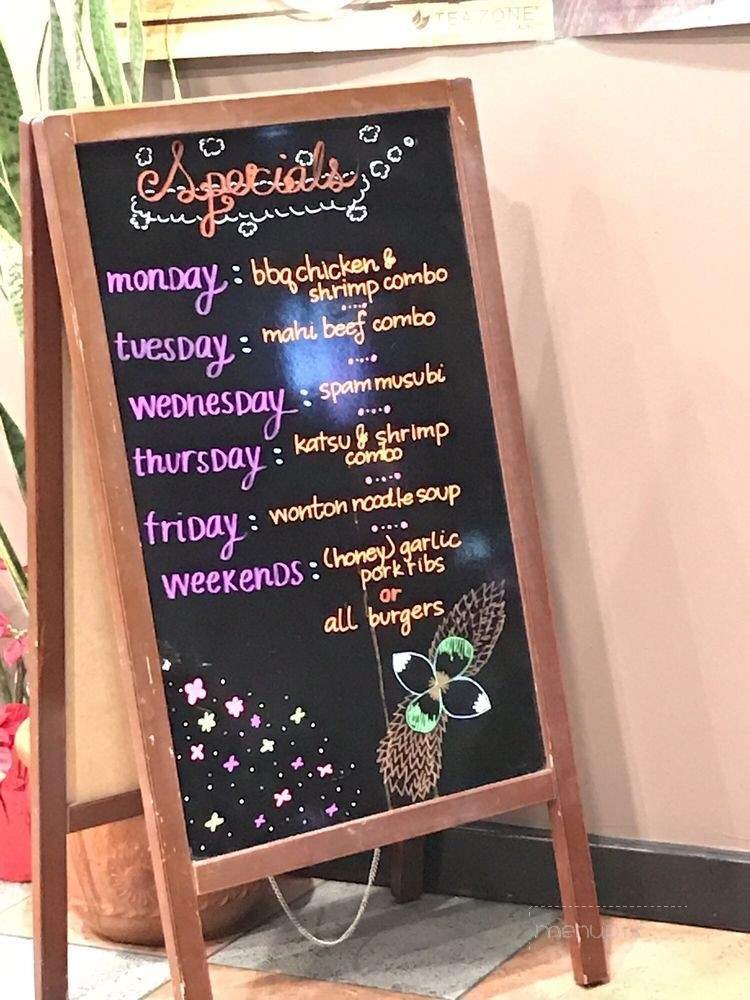 TEA ZONE
Specials
monday: bbq chicken &
shrimp combo
tuesday: mahi beef combo
wednesday: spam musubi
thursday: katsu & shrimp
combo
friday: wonton noodle soup
weekends: (honey) garlic
pork ribs
or
all burgers